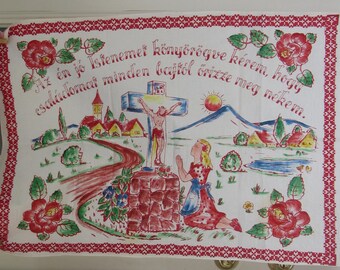 Az én jó Istenemet könyörögve kérem, hogy
családomat minden bajtól őrizze meg nekem.